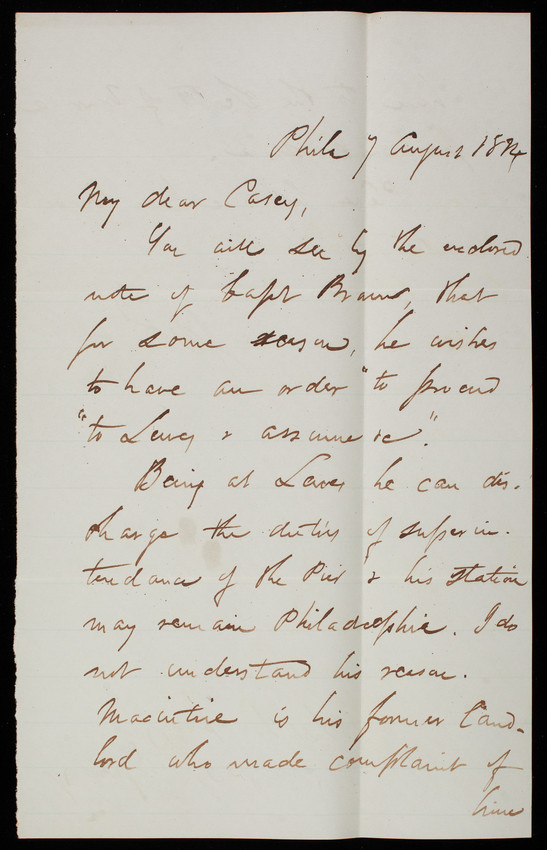 Phila 7 August 1874
My dear Casey,
You will see by the enclosed
note of Capt Brown, that
for some reason, he wishes
to have an order "to proceed
"to Lewes & assume &c".
Being at Lewes he can dis-
charge the duties of superin-
tendance of the Pier & his station
may remain Philadelphia. I do
not understand his reason.
Macintire is his former land-
lord who made complaint of
him